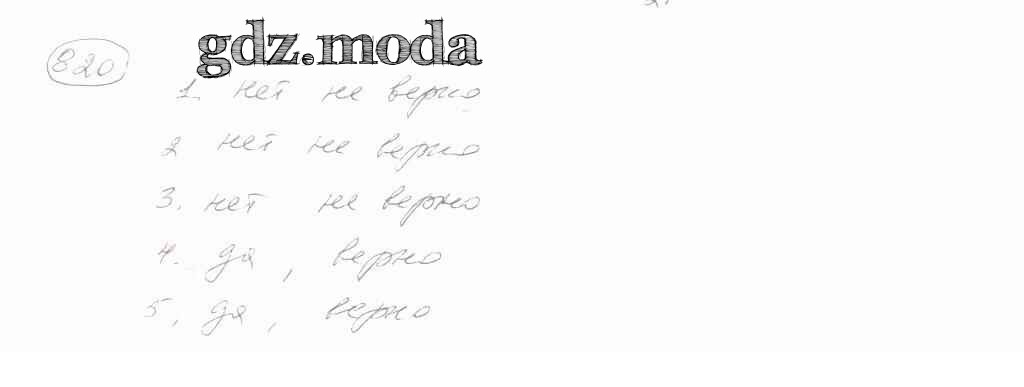 820
gdz.moda
1. нет не верно
2 нет не верно
3. нет не верно
4. да, верно
5, да, верно